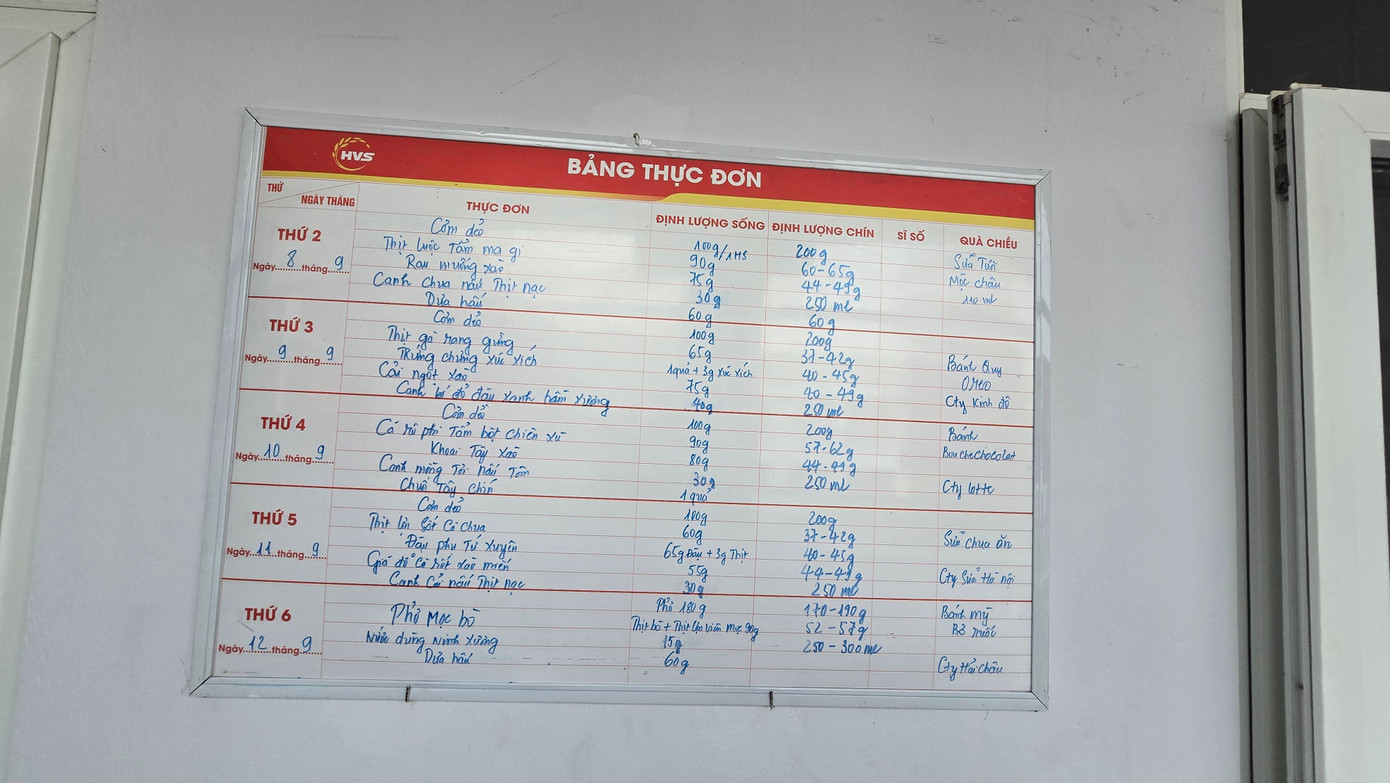 HVS
BẢNG THỰC ĐƠN
THỨ
NGÀY THÁNG
THỰC ĐƠN
ĐỊNH LƯỢNG SỐNG
ĐỊNH LƯỢNG CHÍN
SĨ SỐ
QUÀ CHIỀU
THỨ 2
Ngày 8 tháng 9
Cơm dẻo 100g/1HS 200g
Thịt luộc Tẩm ma gi 90g 60-65g
Rau muống xào 75g 44-49g
Canh chua nấu Thịt nạc 30g 250 ml
Dưa hấu 60g 60g
Sữa Tươi
Mộc châu
110 ml
THỨ 3
Ngày 9 tháng 9
Cơm dẻo 100g 200g
Thịt gà rang gừng 65g 37-42g
Trứng chưng xúc xích 1quả + 3g xúc xích 40-45g
Cải ngọt xào 75g 40-49g
Canh bí đỏ đậu xanh hầm xương 40g 250 ml
Bánh Quy
Oreo
Cty Kinh đô
THỨ 4
Ngày 10 tháng 9
Cơm dẻo 100g 200g
Cá rô phi Tẩm bột chiên xù 90g 57-62g
Khoai Tây xào 80g 44-49g
Canh mồng Tơi nấu Tôm 30g 250 ml
Chuối Tây chín 1 quả
Bánh
Cty lotte
THỨ 5
Ngày 11 tháng 9
Cơm dẻo 100g 200g
Thịt lợn Sốt Cà chua 60g 37-42g
Đậu phụ Tứ xuyên 65g Đậu + 3g Thịt 40-45g
Giá đỗ Cà rốt xào miến 55g 44-49g
Canh Cải nấu Thịt nạc 30g 250 ml
Sữa chua ăn
Cty Sữa Hà nội
THỨ 6
Ngày 12 tháng 9
Phở Mọc bò Phở 180g 170-190g
Thịt bò + Thịt lợn viên mọc 90g 52-57g
Nước dùng Ninh xương 15g 250-300ml
Dưa hấu 60g
Bánh mỳ
Cty Hải Châu